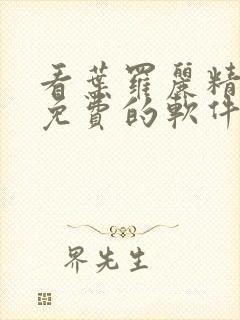 看葉羅麗精
免費的軟件
界先生